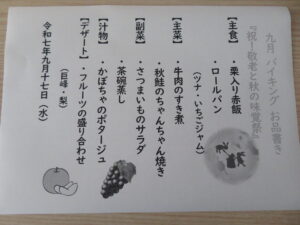 九月 バイキング お品書き
『祝・敬老と秋の味覚祭』
【主食】・栗入り赤飯
・ロールパン
(ツナ・いちごジャム)
【主菜】・牛肉のすき煮
・秋鮭のちゃんちゃん焼き
【副菜】・さつまいものサラダ
・茶碗蒸し
【汁物】・かぼちゃのポタージュ
【デザート】・フルーツの盛り合わせ
(巨峰・梨)
令和七年九月十七日(水)